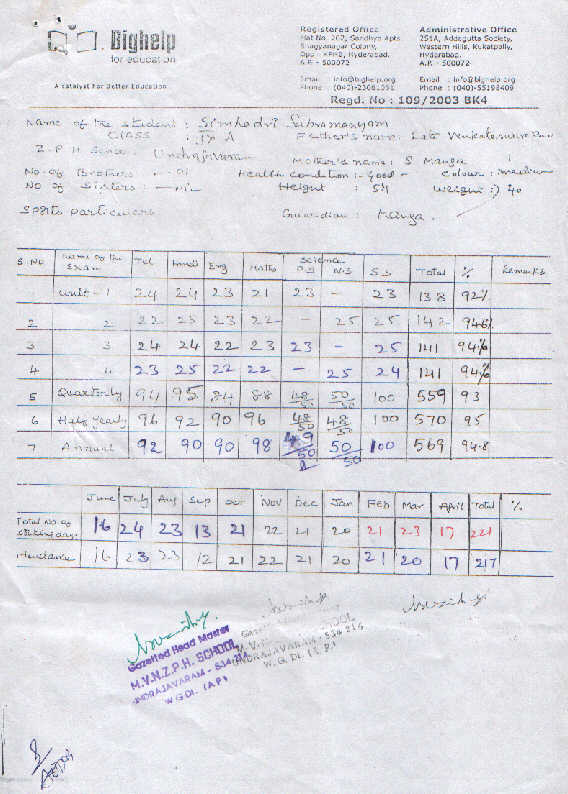 Bighelp
for education
A catalyst For Better Education
Registered Office
Flat No. 202, Sandhya Apts.
Bhagyanagar Colony,
Opp - KPHB, Hyderabad.
A.P. - 500072
Email : info@bighelp.org
Phone : (040)-23061051
Administrative Office
251A, Addagutta Society,
Western Hills, Kukatpally,
Hyderabad.
A.P. - 500072
Email : info@bighelp.org
Phone : (040)-55198409
Regd. No : 109/2003 BK4
Name of the student : Simhadri Subramanyam
CLASS : IX A Father's name: Late
Z.P.H School Undrajavaram
Mother's name: S Manga
No. of Brothers : Health Condition :- Good - Colour : medium
No of Sisters : Height : 54 Weight :) 40
Sports particulars Guardian : Manga.
S. No Name of the Exam Tel Hindi Eng Maths Science P.S N.S S.S Total % Remarks
Unit - 1 24 24 23 21 23 - 23 138 92%
2 2 22 25 23 22 - 25 25 142 94.6%
3 3 24 24 22 23 23 - 25 141 94%
4 4 23 25 22 22 - 25 24 141 94%
5 Quarterly 94 95 84 88 48/50 50/50 100 559 93
6 Half yearly 96 92 90 96 48/50 48/50 100 570 95
7 Annual 92 90 90 98 49/50 50/50 100 569 94.8
June July Aug Sep Oct Nov Dec Jan Feb Mar April Total %
Total No. of working days 16 24 23 13 21 22 21 20 21 23 17 221
Attendance 16 23 23 12 21 22 21 20 21 20 17 217
Gazetted Head Master
M.V.N.Z.P.H. SCHOOL
UNDRAJAVARAM - 534 216
W.G.Dt. (A.P)
UNDRAJAVARAM - 534 216
W.G.Dt. (A.P.)